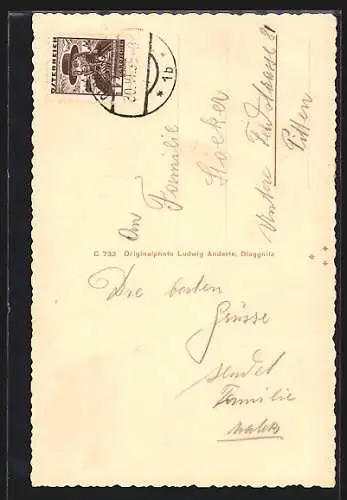 ÖSTERREICH
12
* 1b *
An Familie
Stocker
Untere Feldstrasse 81
Pitten
C 732 Originalphoto Ludwig Anderle, Gloggnitz
Die besten
Grüsse
sendet
Familie